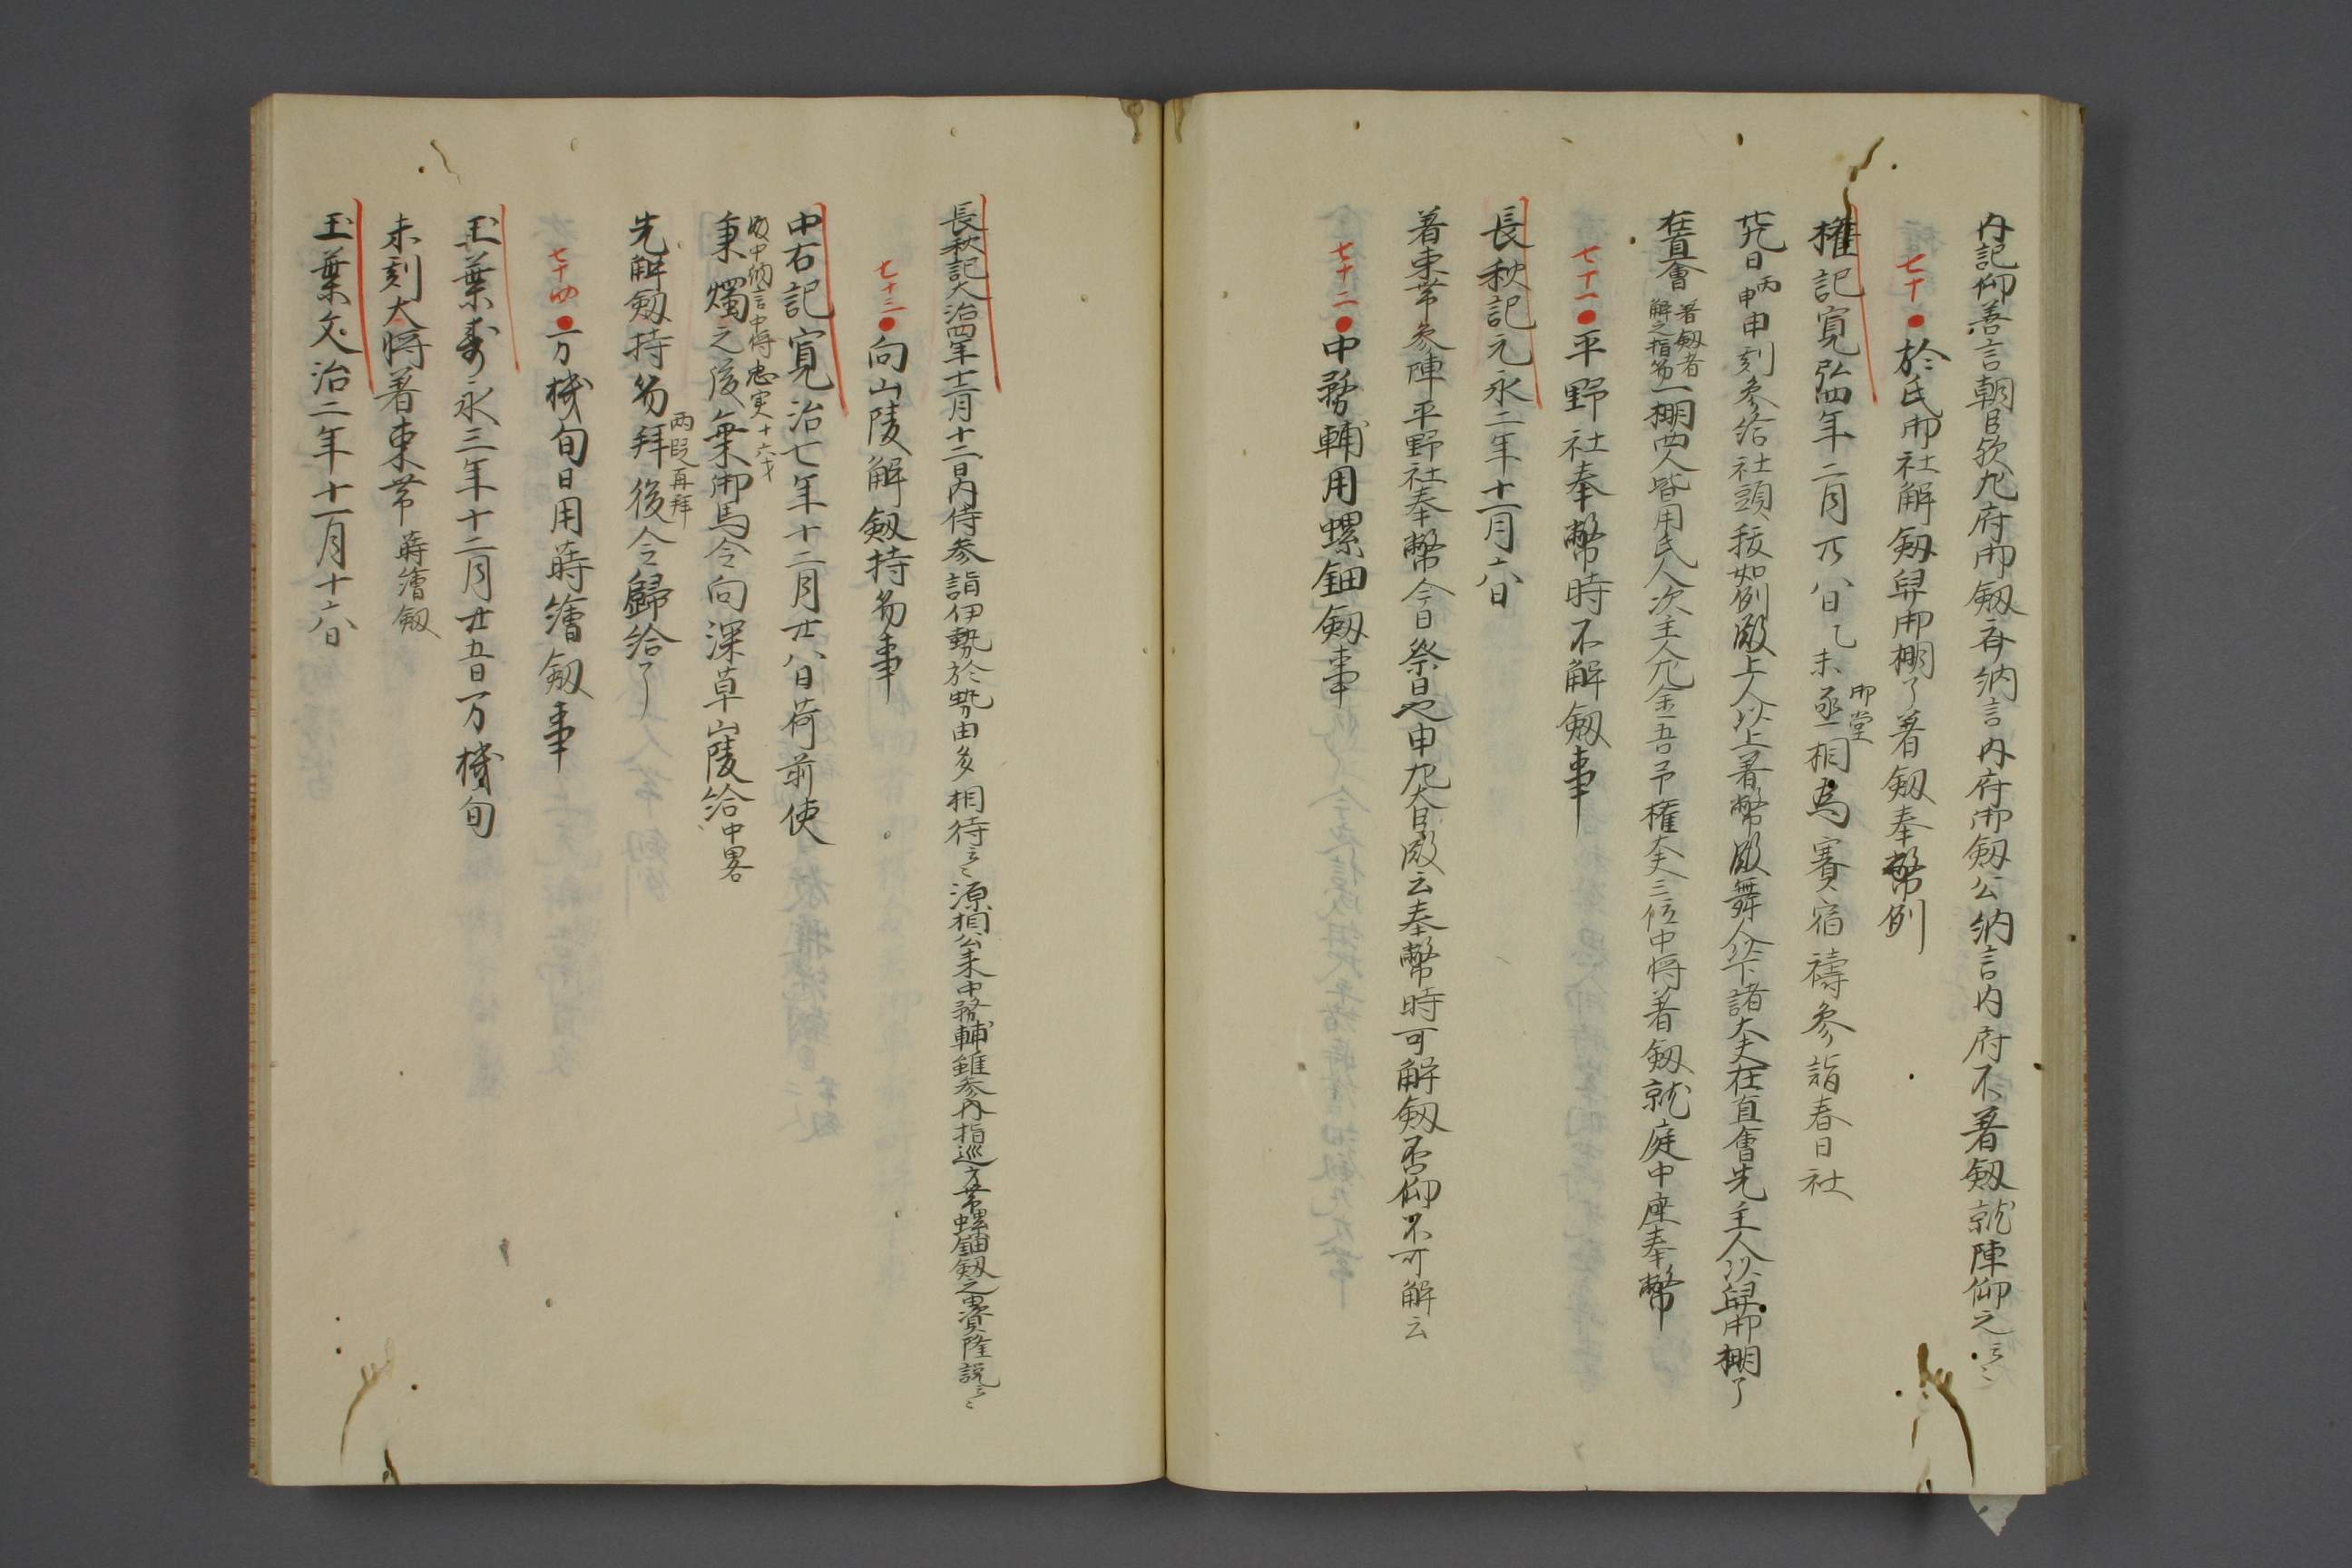 内記仰善言朝臣欤九府御劔弁納言内府御劔公納言内府不著劔就陣仰之云々
七十●於氏御社解劔舁御棚了著劔奉幣例
権記寛弘四年二月廿八日乙未丞相御堂為賽宿禱參詣春日社
廿九日丙申申刻參給社頭祓如例殿上人以上著幣殿舞人以下諸大夫在直會先主人以舁御棚了
在直會著劔者解之指笏一棚四人皆用氏人次主人尤金吾予権大夫三位中将著劔就庭中座奉幣
七十一●平野社奉幣時不解劔事
長秋記元永二年十一月六日
著束帯參陣平野社奉幣今日祭日也申九大臣殿云奉幣時可解劔否仰不可解云
七十二●中務輔用螺鈿劔事
長秋記大治四年十二月十二日内侍参詣伊勢於勢由多相待云々源相公来中務輔雖参内指巡方帯螺鈿劔之異資隆説云々
七十三●向山陵解劔持笏事
中右記寛治七年十二月廿八日荷前使
殿中納言中将忠実十六才
秉燭之後乗御馬令向深草山陵給中畧
先解劔持笏拜両段再拜後令歸給了
七十四●万機旬日用蒔繪劔事
玉葉壽永三年十二月廿五日万機旬
未刻大将著束帯蒔繪劔
玉葉文治二年十一月十六日